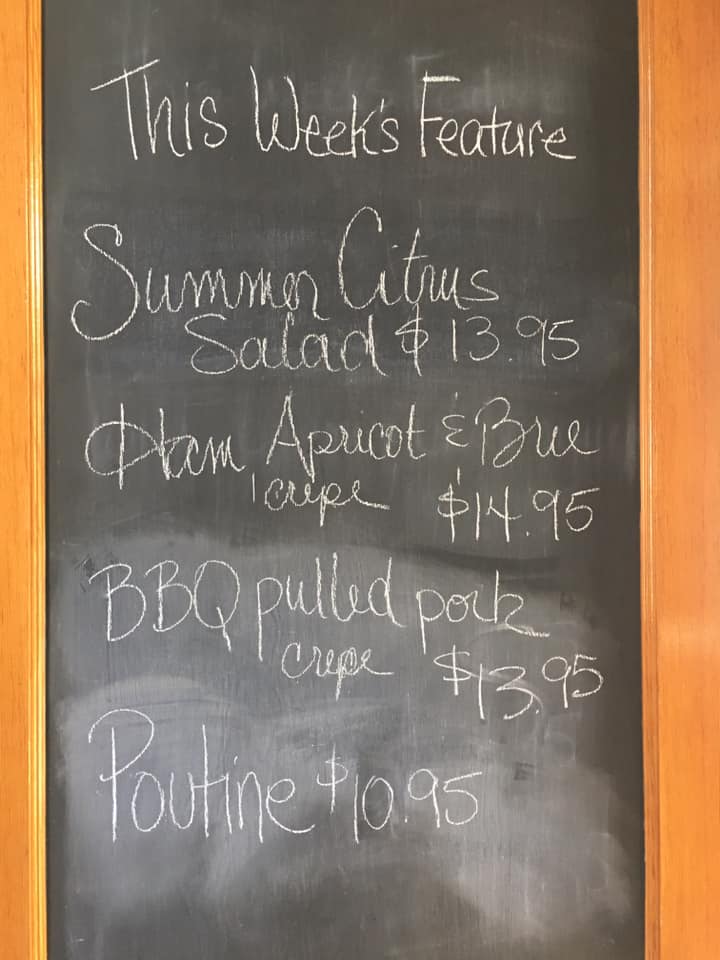 This Week's Feature
Summer Citrus
Salad $13.95
Ham Apricot & Brie
crepe $14.95
BBQ pulled pork
crepe $13.95
Poutine $10.95